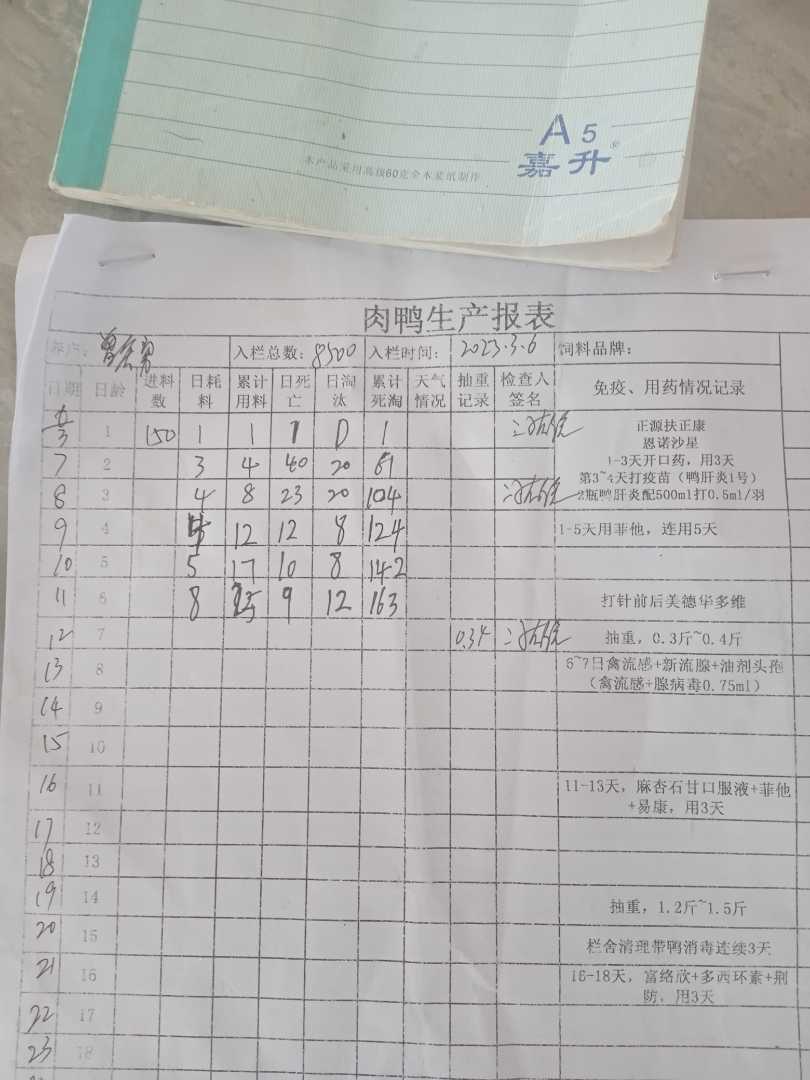 A5
嘉升®
本产品采用高级60克全木浆纸制作
肉鸭生产报表
养户: 入栏总数: 8500 入栏时间: 2023.3.6 饲料品牌:
日期 日龄 进料数 日耗料 累计用料 日死亡 日淘汰 累计死淘 天气情况 抽重记录 检查人签名 免疫、用药情况记录
1 150 1 1 1 0 1 正源扶正康
恩诺沙星
7 2 3 4 40 20 61 1-3天开口药，用3天
第3~4天打疫苗（鸭肝炎1号）
8 3 4 8 23 20 104 2瓶鸭肝炎配500ml打0.5ml/羽
9 4 4 12 12 8 124 1-5天用菲他，连用5天
10 5 5 17 10 8 142
11 6 8 25 9 12 163 打针前后美德华多维
12 7 0.34 抽重，0.3斤~0.4斤
13 8 6~7日禽流感+新流腺+油剂头孢
（禽流感+腺病毒0.75ml）
14 9
15 10
16 11 11-13天，麻杏石甘口服液+菲他
+易康，用3天
17 12
18 13
19 14 抽重，1.2斤~1.5斤
20 15 栏舍清理带鸭消毒连续3天
21 16 16-18天，富络欣+多西环素+荆
防，用3天
22 17
23 18